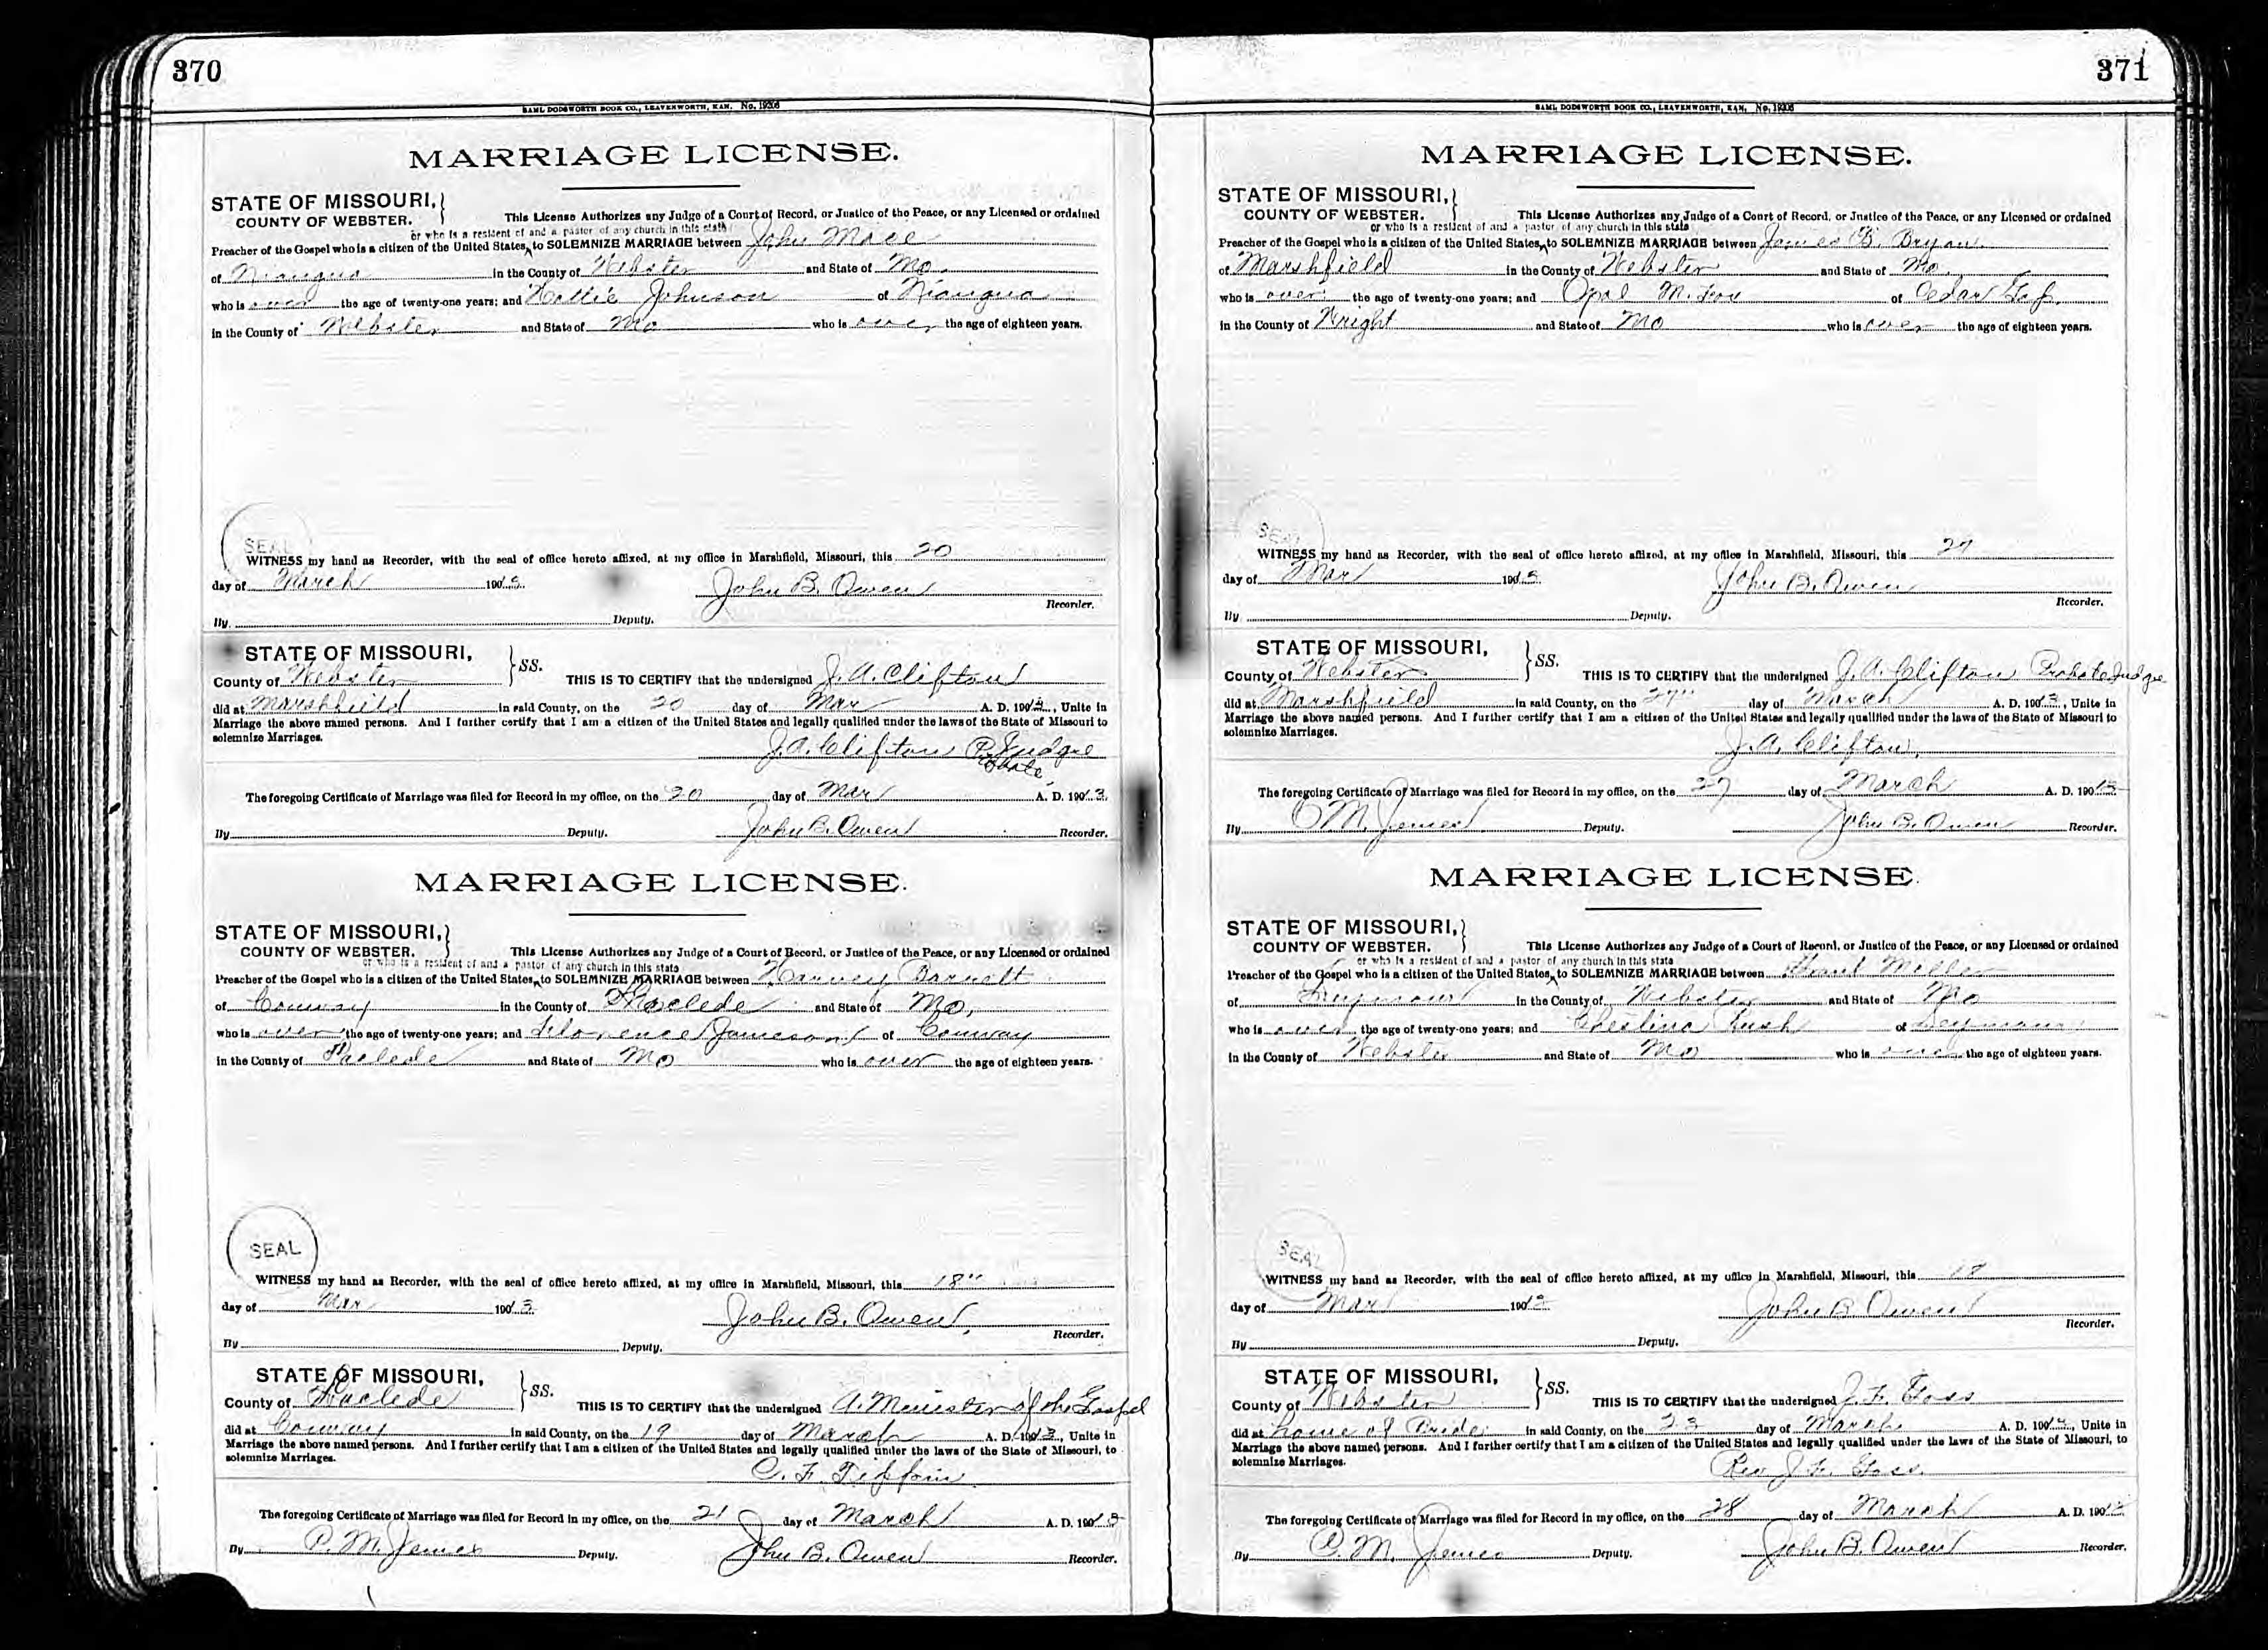 370
SAML DODSWORTH BOOK CO., LEAVENWORTH, KAN. No. 19206
MARRIAGE LICENSE.
STATE OF MISSOURI,
COUNTY OF WEBSTER. This License Authorizes any Judge of a Court of Record, or Justice of the Peace, or any Licensed or ordained
or who is a resident of and a pastor of any church in this state
Preacher of the Gospel who is a citizen of the United States, to SOLEMNIZE MARRIAGE between John Mace
of Niangua in the County of Webster and State of Mo.
who is over the age of twenty-one years; and Hattie Johnson of Niangua
in the County of Webster and State of Mo who is over the age of eighteen years.
SEAL
WITNESS my hand as Recorder, with the seal of office hereto affixed, at my office in Marshfield, Missouri, this 20
day of March 1913. John B. Owen
Recorder.
By Deputy.
STATE OF MISSOURI,
County of Webster SS. THIS IS TO CERTIFY that the undersigned J. A. Clifton
did at Marshfield in said County, on the 20 day of Mar A. D. 1913, Unite in
Marriage the above named persons. And I further certify that I am a citizen of the United States and legally qualified under the laws of the State of Missouri to
solemnize Marriages.
J. A. Clifton P. Judge
Probate
The foregoing Certificate of Marriage was filed for Record in my office, on the 20 day of Mar A. D. 1913.
By Deputy. John B. Owen Recorder.
MARRIAGE LICENSE.
STATE OF MISSOURI,
COUNTY OF WEBSTER. This License Authorizes any Judge of a Court of Record, or Justice of the Peace, or any Licensed or ordained
or who is a resident of and a pastor of any church in this state
Preacher of the Gospel who is a citizen of the United States, to SOLEMNIZE MARRIAGE between Harvey Barnett
of Conway in the County of Laclede and State of Mo,
who is over the age of twenty-one years; and Florence Jameson of Conway
in the County of Laclede and State of Mo who is over the age of eighteen years.
SEAL
WITNESS my hand as Recorder, with the seal of office hereto affixed, at my office in Marshfield, Missouri, this 18"
day of Mar 1913. John B. Owen,
Recorder.
By Deputy.
STATE OF MISSOURI,
County of Laclede SS. THIS IS TO CERTIFY that the undersigned A Minister of the Gospel
did at Conway in said County, on the 19 day of March A. D. 1913, Unite in
Marriage the above named persons. And I further certify that I am a citizen of the United States and legally qualified under the laws of the State of Missouri, to
solemnize Marriages.
C. F.
The foregoing Certificate of Marriage was filed for Record in my office, on the 21 day of March A. D. 1913
By P. M. James Deputy. John B. Owen Recorder.
371
SAML DODSWORTH BOOK CO., LEAVENWORTH, KAN. No. 19206
MARRIAGE LICENSE.
STATE OF MISSOURI,
COUNTY OF WEBSTER. This License Authorizes any Judge of a Court of Record, or Justice of the Peace, or any Licensed or ordained
or who is a resident of and a pastor of any church in this state
Preacher of the Gospel who is a citizen of the United States, to SOLEMNIZE MARRIAGE between James B. Bryan
of Marshfield in the County of Webster and State of Mo.
who is over the age of twenty-one years; and Opal M. Fox of Cedar Gap.
in the County of Wright and State of Mo who is over the age of eighteen years.
SEAL
WITNESS my hand as Recorder, with the seal of office hereto affixed, at my office in Marshfield, Missouri, this 27
day of Mar 1913. John B. Owen
Recorder.
By Deputy.
STATE OF MISSOURI,
County of Webster SS. THIS IS TO CERTIFY that the undersigned J. A. Clifton Probate Judge
did at Marshfield in said County, on the 27" day of March A. D. 1913, Unite in
Marriage the above named persons. And I further certify that I am a citizen of the United States and legally qualified under the laws of the State of Missouri to
solemnize Marriages.
J. A. Clifton,
The foregoing Certificate of Marriage was filed for Record in my office, on the 27 day of March A. D. 1913
By M. James Deputy. John B. Owen Recorder.
MARRIAGE LICENSE.
STATE OF MISSOURI,
COUNTY OF WEBSTER. This License Authorizes any Judge of a Court of Record, or Justice of the Peace, or any Licensed or ordained
or who is a resident of and a pastor of any church in this state
Preacher of the Gospel who is a citizen of the United States, to SOLEMNIZE MARRIAGE between Miller
of Seymour in the County of Webster and State of Mo
who is over the age of twenty-one years; and Rush of Seymour
in the County of Webster and State of Mo who is over the age of eighteen years.
SEAL
WITNESS my hand as Recorder, with the seal of office hereto affixed, at my office in Marshfield, Missouri, this 18
day of Mar 1913 John B. Owen
Recorder.
By Deputy.
STATE OF MISSOURI,
County of Webster SS. THIS IS TO CERTIFY that the undersigned J. F. Goss
did at home of Bride in said County, on the 23 day of March A. D. 1913, Unite in
Marriage the above named persons. And I further certify that I am a citizen of the United States and legally qualified under the laws of the State of Missouri, to
solemnize Marriages.
Rev J. F. Goss.
The foregoing Certificate of Marriage was filed for Record in my office, on the 28 day of March A. D. 1913
By M. James Deputy. John B. Owen Recorder.